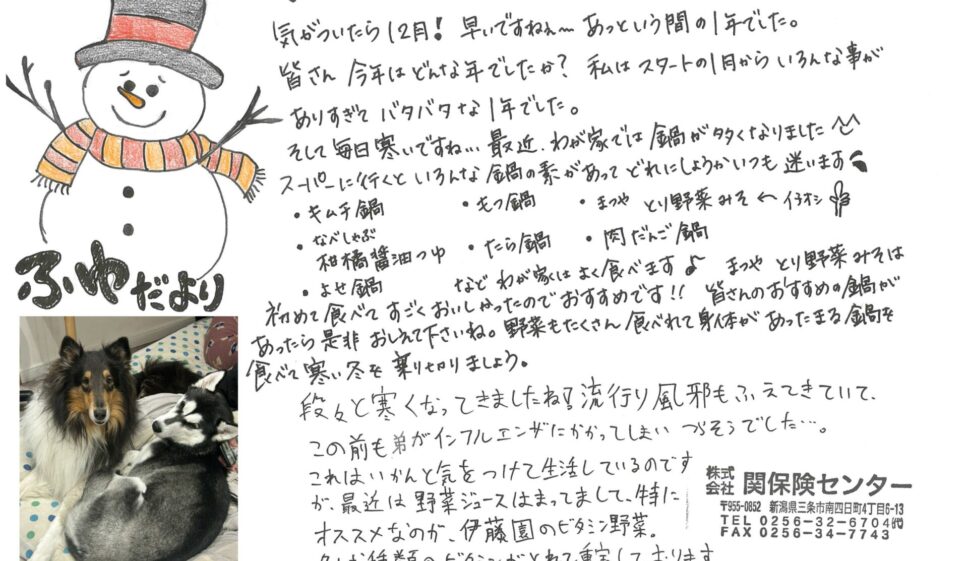 気がついたら12月! 早いですねぇ〜 あっという間の1年でした。
皆さん 今年はどんな年でしたか? 私はスタートの1月からいろんな事が
ありすぎて バタバタな1年でした。
そして毎日寒いですね… 最近、わが家では鍋が多くなりました
スーパーに行くといろんな鍋の素があってどれにしようかいつも迷います
・キムチ鍋 ・もつ鍋 ・まつや とり野菜みそ ← イチオシ
・なべしゃぶ 柑橘醤油つゆ ・たら鍋 ・肉だんご鍋
・よせ鍋 など わが家はよく食べます♪ まつや とり野菜みそは
初めて食べて すごくおいしかったのでおすすめです!! 皆さんのおすすめの鍋が
あったら是非 おしえて下さいね。野菜もたくさん食べれて身体があったまる鍋を
食べて寒い冬を乗り切りましょう。
ふやだより
段々と寒くなってきましたね!流行り風邪もふえてきていて、
この前も弟がインフルエンザにかかってしまい つらそうでした…。
これはいかんと気をつけて生活しているのです
が、最近は野菜ジュースはまってまして、特に
オススメなのが、伊藤園のビタミン野菜。
株式会社 関保険センター
〒955-0852 新潟県三条市南四日町4丁目6-13
TEL 0256-32-6704㈹
FAX 0256-34-7743